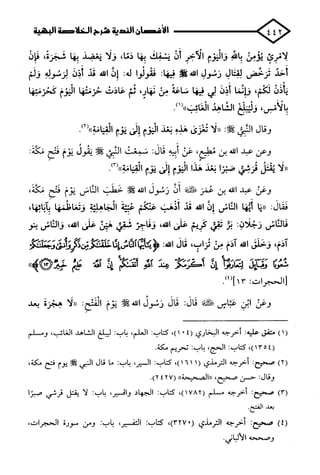 ٤٤٢ الأغصان الندية شرح الخلاصة البهية
لِامْرِئٍ يُؤْمِنُ بِاللهِ وَالْيَوْمِ الْآخِرِ أَنْ يَسْفِكَ بِهَا دَمًا، وَلَا يَعْضِدَ بِهَا شَجَرَةً، فَإِنْ
أَحَدٌ تَرَخَّصَ لِقِتَالِ رَسُولِ اللهِ ﷺ فِيهَا: فَقُولُوا لَهُ: إِنَّ اللهَ قَدْ أَذِنَ لِرَسُولِهِ وَلَمْ
يَأْذَنْ لَكُمْ، وَإِنَّمَا أَذِنَ لِي فِيهَا سَاعَةً مِنْ نَهَارٍ، ثُمَّ عَادَتْ حُرْمَتُهَا الْيَوْمَ كَحُرْمَتِهَا
بِالْأَمْسِ، وَلْيُبَلِّغِ الشَّاهِدُ الْغَائِبَ»(١).
وقال النبي ﷺ: «لَا تُغْزَى هَذِهِ بَعْدَ الْيَوْمِ إِلَى يَوْمِ الْقِيَامَةِ»(٢).
وعن عبد الله بن مُطِيعٍ، عَنْ أَبِيهِ قَالَ: سَمِعْتُ النَّبِيَّ ﷺ يَقُولُ يَوْمَ فَتْحِ مَكَّةَ:
«لَا يُقْتَلُ قُرَشِيٌّ صَبْرًا بَعْدَ هَذَا الْيَوْمِ إِلَى يَوْمِ الْقِيَامَةِ»(٣).
وَعَنْ عَبْدِ اللهِ بن عُمَرَ ﷺ أَنَّ رَسُولَ اللهِ ﷺ خَطَبَ النَّاسَ يَوْمَ فَتْحِ مَكَّةَ،
فَقَالَ: «يَا أَيُّهَا النَّاسُ إِنَّ اللهَ قَدْ أَذْهَبَ عَنْكُمْ عُبِّيَّةَ الْجَاهِلِيَّةِ وَتَعَاظُمَهَا بِآبَائِهَا،
فَالنَّاسُ رَجُلَانِ: بَرٌّ تَقِيٌّ كَرِيمٌ عَلَى اللهِ، وَفَاجِرٌ شَقِيٌّ هَيِّنٌ عَلَى اللهِ، وَالنَّاسُ بنو
آدَمَ، وَخَلَقَ اللهُ آدَمَ مِنْ تُرَابٍ، قَالَ اللهُ: ﴿يَا أَيُّهَا النَّاسُ إِنَّا خَلَقْنَاكُم مِّن ذَكَرٍ وَأُنثَى وَجَعَلْنَاكُمْ
شُعُوبًا وَقَبَائِلَ لِتَعَارَفُوا إِنَّ أَكْرَمَكُمْ عِندَ اللَّهِ أَتْقَاكُمْ إِنَّ اللَّهَ عَلِيمٌ خَبِيرٌ ﴿١٣﴾﴾
[الحجرات: ١٣](٤).
وَعَنْ ابْنِ عَبَّاسٍ ﷺ قَالَ: قَالَ رَسُولُ اللهِ ﷺ يَوْمَ الْفَتْحِ: «لَا هِجْرَةَ بعد
(١) متفق عليه: أخرجه البخاري (١٠٤)، كتاب: العلم، باب: ليبلغ الشاهد الغائب، ومسلم
(١٣٥٤)، كتاب: الحج، باب: تحريم مكة.
(٢) صحيح: أخرجه الترمذي (١٦١١)، كتاب: السير، باب: ما قال النبي ﷺ يوم فتح مكة،
وقال: حسن صحيح، «الصحيحة» (٢٤٢٧).
(٣) صحيح: أخرجه مسلم (١٧٨٢)، كتاب: الجهاد والسير، باب: لا يقتل قرشي صبرًا
بعد الفتح.
(٤) صحيح: أخرجه الترمذي (٣٢٧٠)، كتاب: التفسير، باب: ومن سورة الحجرات،
وصححه الألباني.